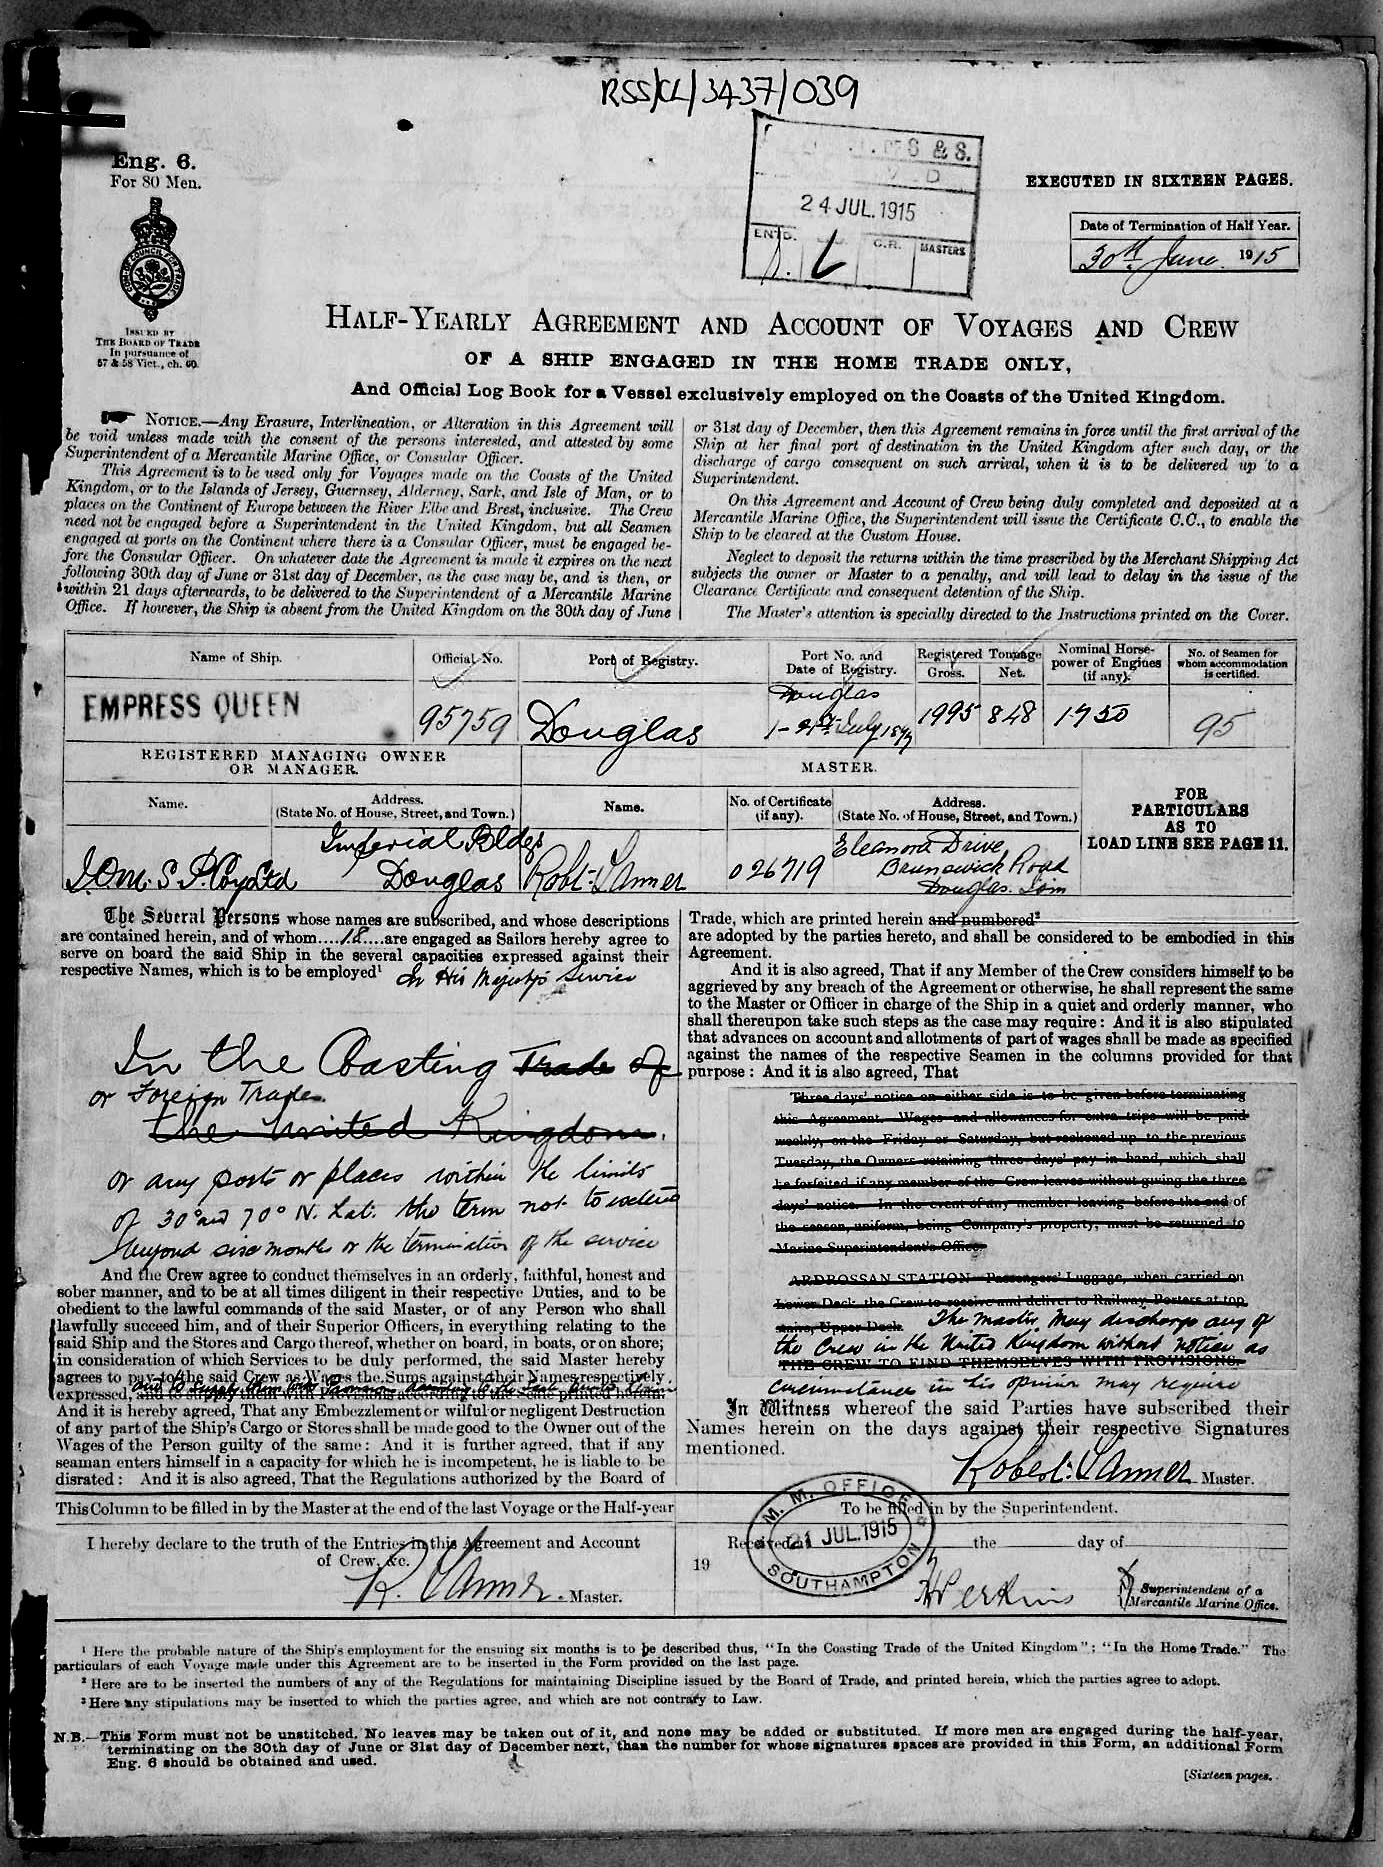 RSS/CL/3437/039
Eng. 6.
For 80 Men.
ISSUED BY
THE BOARD OF TRADE
In pursuance of
57 & 58 Vict., ch. 60.
& S.
24 JUL. 1915
ENTD.
C.R.
MASTERS
EXECUTED IN SIXTEEN PAGES.
Date of Termination of Half Year.
30th June 1915
HALF-YEARLY AGREEMENT AND ACCOUNT OF VOYAGES AND CREW
OF A SHIP ENGAGED IN THE HOME TRADE ONLY,
And Official Log Book for a Vessel exclusively employed on the Coasts of the United Kingdom.
NOTICE.—Any Erasure, Interlineation, or Alteration in this Agreement will
be void unless made with the consent of the persons interested, and attested by some
Superintendent of a Mercantile Marine Office, or Consular Officer.
This Agreement is to be used only for Voyages made on the Coasts of the United
Kingdom, or to the Islands of Jersey, Guernsey, Alderney, Sark, and Isle of Man, or to
places on the Continent of Europe between the River Elbe and Brest, inclusive. The Crew
need not be engaged before a Superintendent in the United Kingdom, but all Seamen
engaged at ports on the Continent where there is a Consular Officer, must be engaged be-
fore the Consular Officer. On whatever date the Agreement is made it expires on the next
following 30th day of June or 31st day of December, as the case may be, and is then, or
within 21 days afterwards, to be delivered to the Superintendent of a Mercantile Marine
Office. If however, the Ship is absent from the United Kingdom on the 30th day of June
or 31st day of December, then this Agreement remains in force until the first arrival of the
Ship at her final port of destination in the United Kingdom after such day, or the
discharge of cargo consequent on such arrival, when it is to be delivered up to a
Superintendent.
On this Agreement and Account of Crew being duly completed and deposited at a
Mercantile Marine Office, the Superintendent will issue the Certificate C.C., to enable the
Ship to be cleared at the Custom House.
Neglect to deposit the returns within the time prescribed by the Merchant Shipping Act
subjects the owner or Master to a penalty, and will lead to delay in the issue of the
Clearance Certificate and consequent detention of the Ship.
The Master's attention is specially directed to the Instructions printed on the Cover.
Name of Ship.
Official No.
Port of Registry.
Port No. and
Date of Registry.
Registered Tonnage
Gross.
Net.
Nominal Horse-
power of Engines
(if any).
No. of Seamen for
whom accommodation
is certified.
EMPRESS QUEEN
95759
Douglas
Douglas
1- 21st July 1897
1995
848
1750
95
REGISTERED MANAGING OWNER
OR MANAGER.
MASTER.
Name.
Address.
(State No. of House, Street, and Town.)
Name.
No. of Certificate
(if any).
Address.
(State No. of House, Street, and Town.)
FOR
PARTICULARS
AS TO
LOAD LINE SEE PAGE 11.
I.O.M. S. P. Coy Ltd
Imperial Bldgs
Douglas
Robt. Canner
026719
Eleanora Drive
Brunswick Road
Douglas. Iom
The Several Persons whose names are subscribed, and whose descriptions
are contained herein, and of whom....18....are engaged as Sailors hereby agree to
serve on board the said Ship in the several capacities expressed against their
respective Names, which is to be employed¹ In His Majesty's Service
In the Coasting Trade of
or Foreign Trade
the United Kingdom.
or any ports or places within the limits
of 30° and 70° N. Lat. the term not to extend
beyond six months or the termination of the service
And the Crew agree to conduct themselves in an orderly, faithful, honest and
sober manner, and to be at all times diligent in their respective Duties, and to be
obedient to the lawful commands of the said Master, or of any Person who shall
lawfully succeed him, and of their Superior Officers, in everything relating to the
said Ship and the Stores and Cargo thereof, whether on board, in boats, or on shore;
in consideration of which Services to be duly performed, the said Master hereby
agrees to pay to the said Crew as Wages the Sums against their Names respectively
expressed, and to supply them with Provisions according to the
And it is hereby agreed, That any Embezzlement or wilful or negligent Destruction
of any part of the Ship's Cargo or Stores shall be made good to the Owner out of the
Wages of the Person guilty of the same: And it is further agreed, that if any
seaman enters himself in a capacity for which he is incompetent, he is liable to be
disrated: And it is also agreed, That the Regulations authorized by the Board of
Trade, which are printed herein and numbered²
are adopted by the parties hereto, and shall be considered to be embodied in this
Agreement.
And it is also agreed, That if any Member of the Crew considers himself to be
aggrieved by any breach of the Agreement or otherwise, he shall represent the same
to the Master or Officer in charge of the Ship in a quiet and orderly manner, who
shall thereupon take such steps as the case may require: And it is also stipulated
that advances on account and allotments of part of wages shall be made as specified
against the names of the respective Seamen in the columns provided for that
purpose: And it is also agreed, That
Three days' notice on either side is to be given before terminating
this Agreement. Wages and allowances for extra trips will be paid
weekly, on the Friday or Saturday, but reckoned up to the previous
Tuesday, the Owners retaining three days' pay in hand, which shall
be forfeited if any member of the Crew leaves without giving the three
days' notice. In the event of any member leaving before the end of
the season, uniform, being Company's property, must be returned to
Marine Superintendent's Office.
ARDROSSAN STATION—Passengers' Luggage, when carried on
Lower Deck, the Crew to receive and deliver to Railway Porters at top
stairs, Upper Deck. The Master may discharge any of
the Crew in the United Kingdom without notice as
THE CREW TO FIND THEMSELVES WITH PROVISIONS.
circumstances in his opinion may require
In Witness whereof the said Parties have subscribed their
Names herein on the days against their respective Signatures
mentioned.
Robert Canner Master.
This Column to be filled in by the Master at the end of the last Voyage or the Half-year
To be filled in by the Superintendent.
I hereby declare to the truth of the Entries in this Agreement and Account
of Crew, &c.
R. Canner. Master.
Received at the day of
19
M. M. OFFICE
21 JUL. 1915
SOUTHAMPTON
Perkins
Superintendent of a
Mercantile Marine Office.
¹ Here the probable nature of the Ship's employment for the ensuing six months is to be described thus, "In the Coasting Trade of the United Kingdom"; "In the Home Trade." The
particulars of each Voyage made under this Agreement are to be inserted in the Form provided on the last page.
² Here are to be inserted the numbers of any of the Regulations for maintaining Discipline issued by the Board of Trade, and printed herein, which the parties agree to adopt.
³ Here any stipulations may be inserted to which the parties agree, and which are not contrary to Law.
N.B.—This Form must not be unstitched. No leaves may be taken out of it, and none may be added or substituted. If more men are engaged during the half-year,
terminating on the 30th day of June or 31st day of December next, than the number for whose signatures spaces are provided in this Form, an additional Form
Eng. 6 should be obtained and used.
[Sixteen pages.